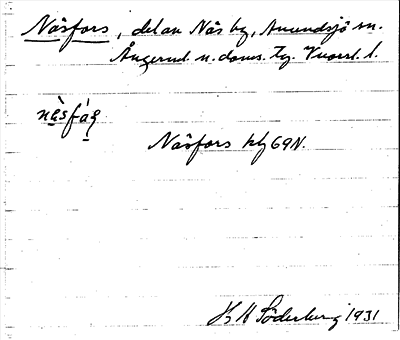 Näsfors, del av Näs by, Anundsjö sn.
Ångerml. n. doms. tg. Vnorrl. l.
Näsfors kbl 69N.
K H Söderberg 1931